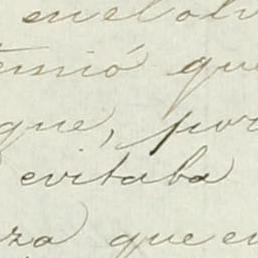 en el olv
temió que
que, por
evitaba
za que en